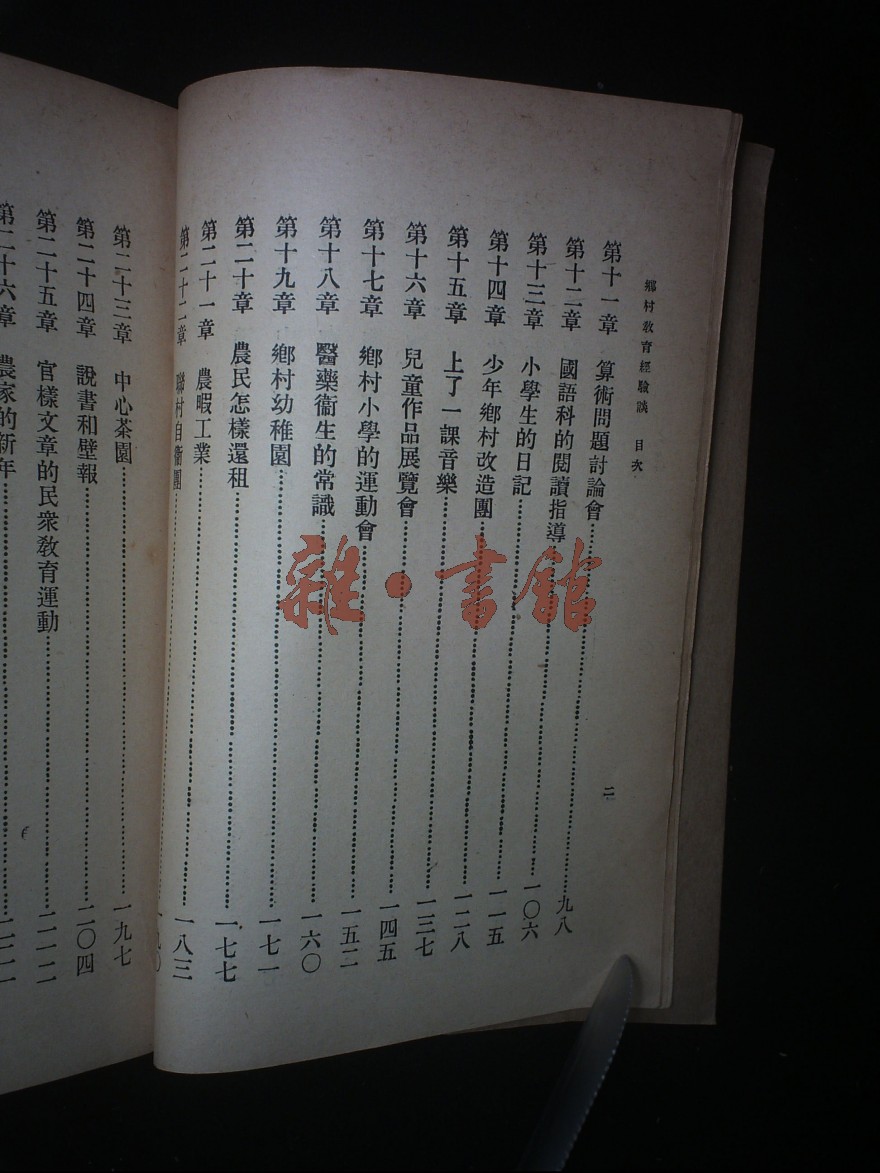 鄉村教育經驗談 目次 二
第十一章 算術問題討論會……九八
第十二章 國語科的閱讀指導……一〇六
第十三章 小學生的日記……一一五
第十四章 少年鄉村改造團……一二八
第十五章 上了一課音樂……一三七
第十六章 兒童作品展覽會……一四五
第十七章 鄉村小學的運動會……一五二
第十八章 醫藥衞生的常識……一六〇
第十九章 鄉村幼稚園……一七一
第二十章 農民怎樣還租……一七七
第二十一章 農暇工業……一八三
第二十二章 聯村自衞團……一九〇
第二十三章 中心茶園……一九七
第二十四章 說書和壁報……二〇四
第二十五章 官樣文章的民衆教育運動……二一二
第二十六章 農家的新年……
雜·書館